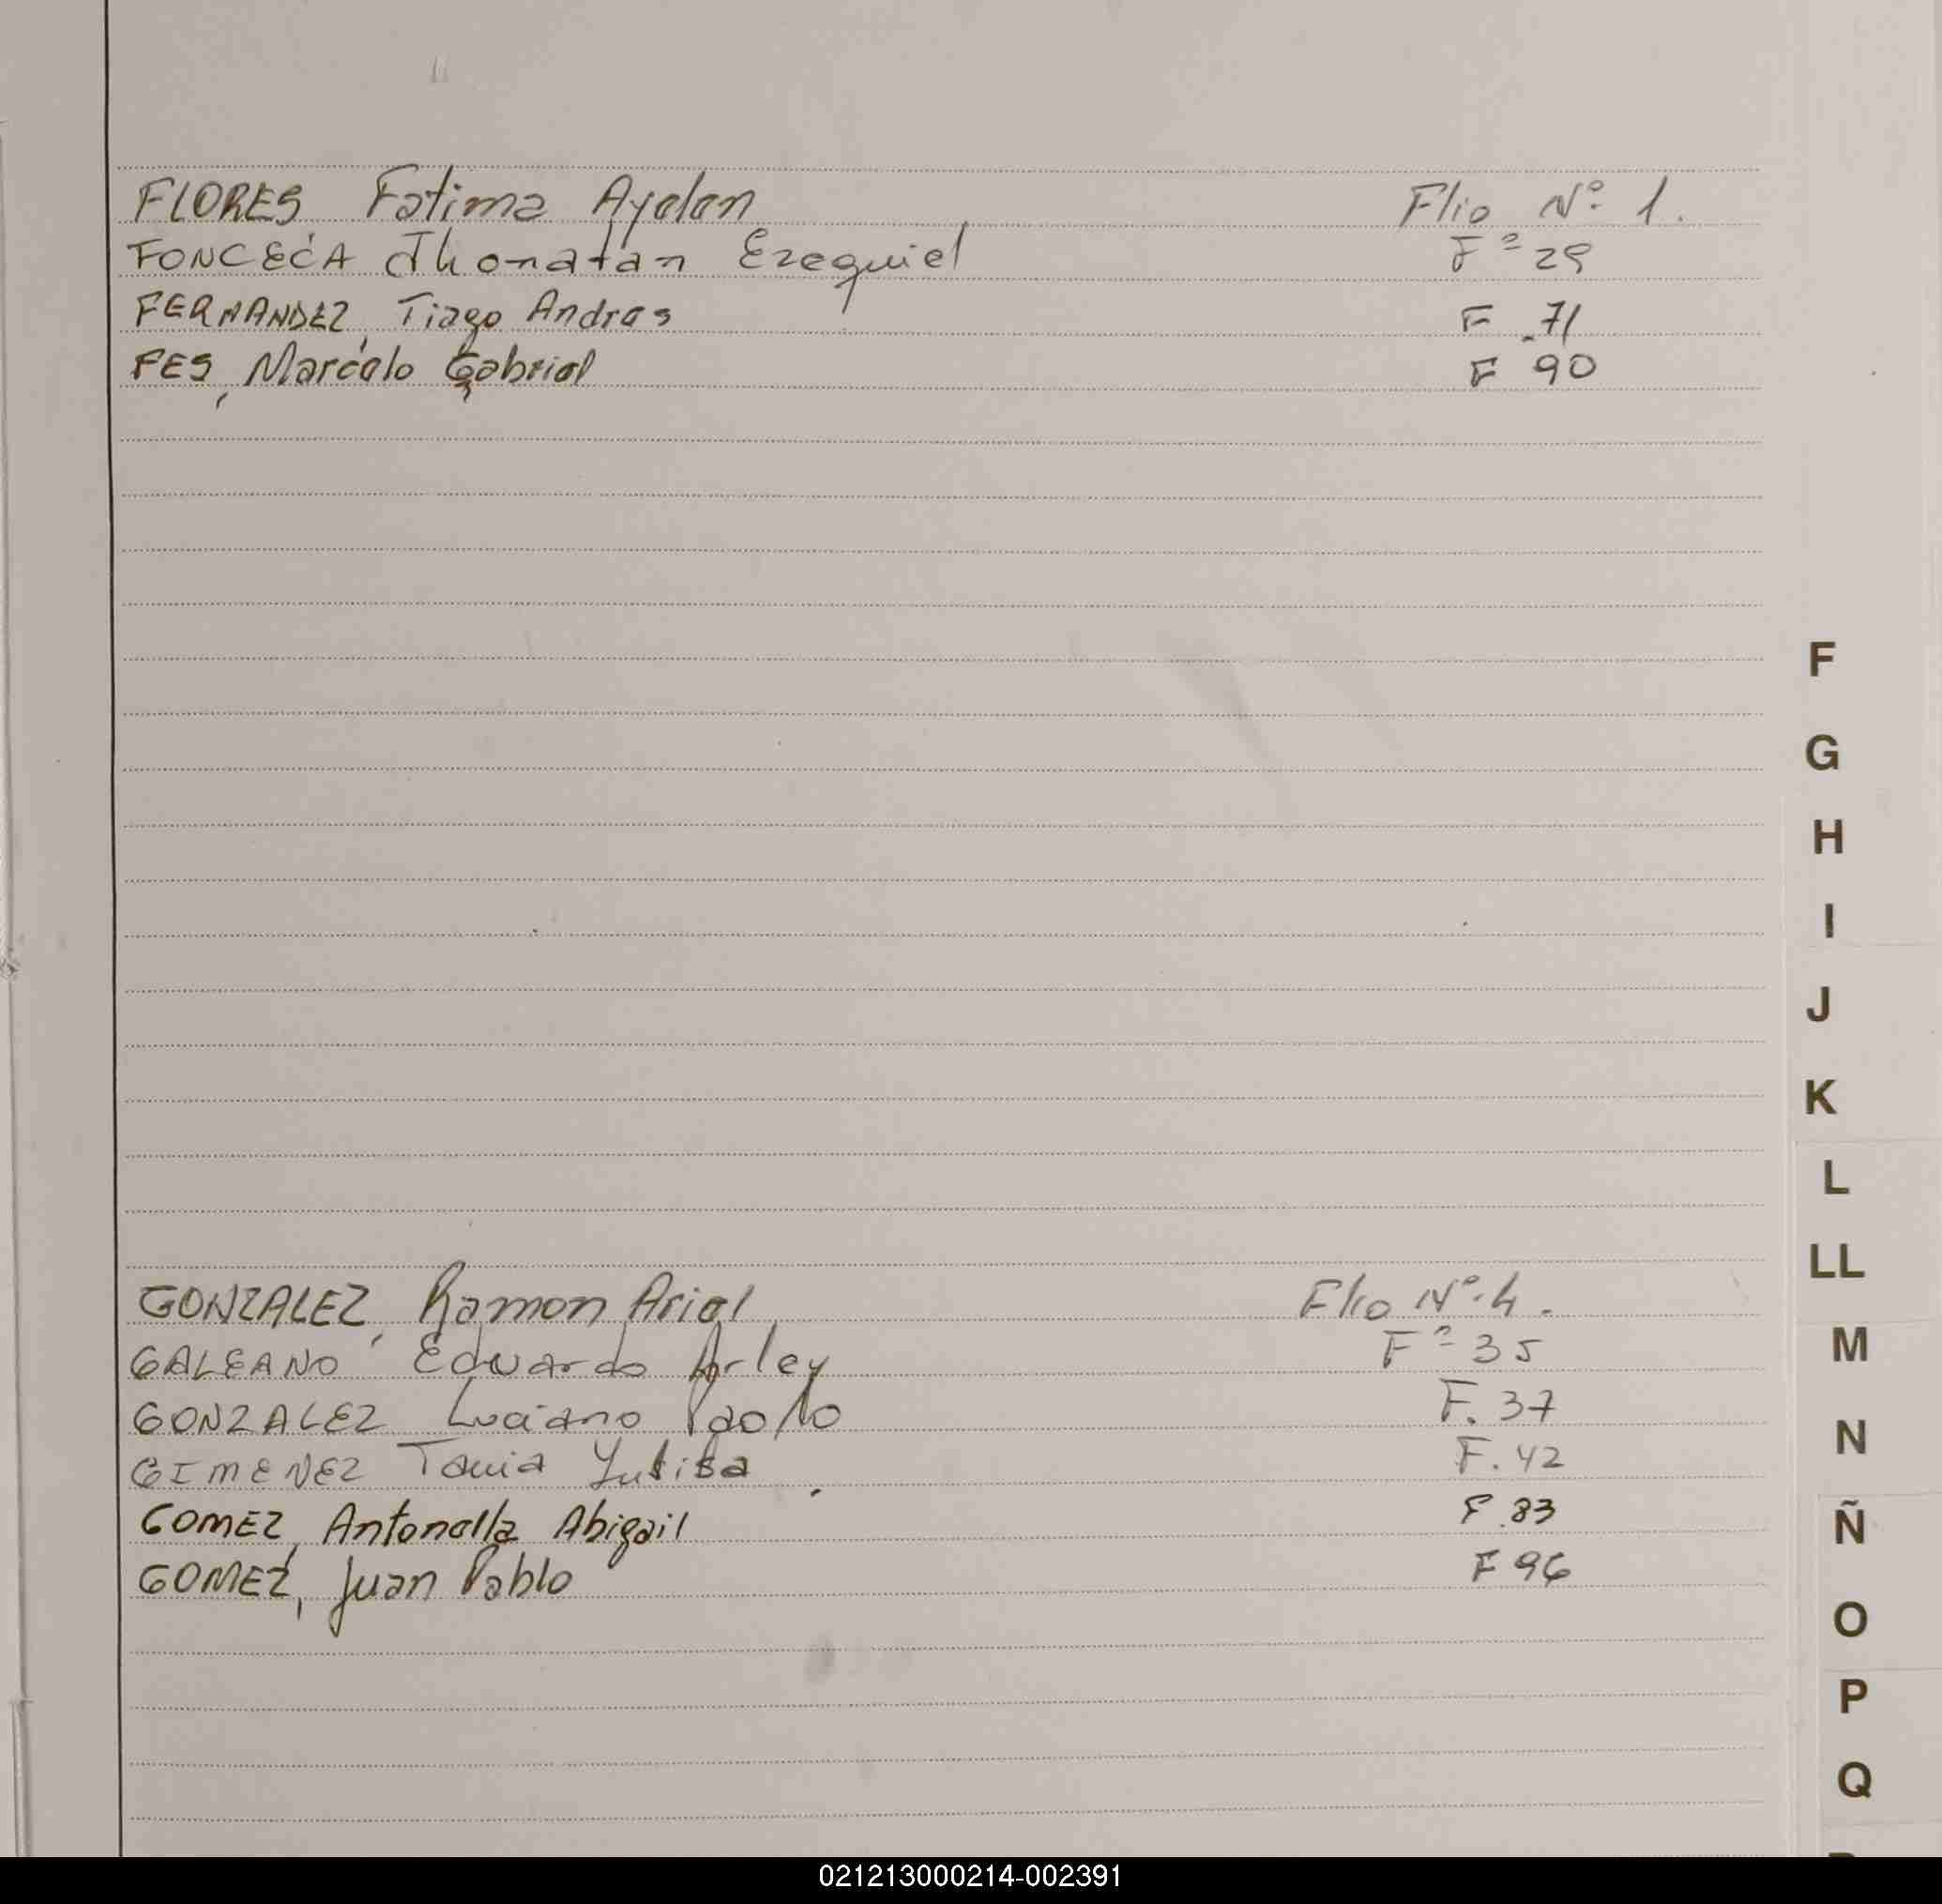 FLORES Fatima Ayelen Flio Nº 1.
FONCECA Jhonatan Ezequiel Fº 29
FERNANDEZ, Tiago Andres F. 71
FES, Marcelo Gabriel F 90
F
G
H
I
J
K
L
LL
GONZALEZ, Ramon Ariel Flio Nº 4.
GALEANO Eduardo Arley Fº 35
M
GONZALEZ Luciano Paolo F. 37
N
GIMENEZ Tania F. 42
GOMEZ, Antonella Abigail F. 83
Ñ
GOMEZ, Juan Pablo F 96
O
P
Q
021213000214-002391